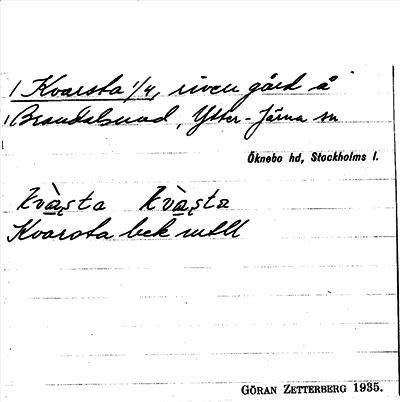 Kvarsta 1/4, riven gård å
Brandalsund, Ytter-Järna sn
Öknebo hd, Stockholms l.
Kvarsta bek mtll
GÖRAN ZETTERBERG 1935.